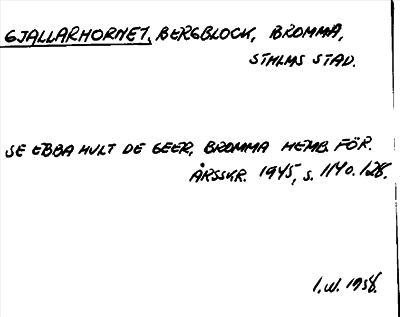 GJALLARHORNET, BERGBLOCK, BROMMA,
STHLMS STAD.
SE EBBA HULT DE GEER, BROMMA HEMB. FÖR.
ÅRSSKR. 1945, s. 114 o. 128.
I.W. 1958.